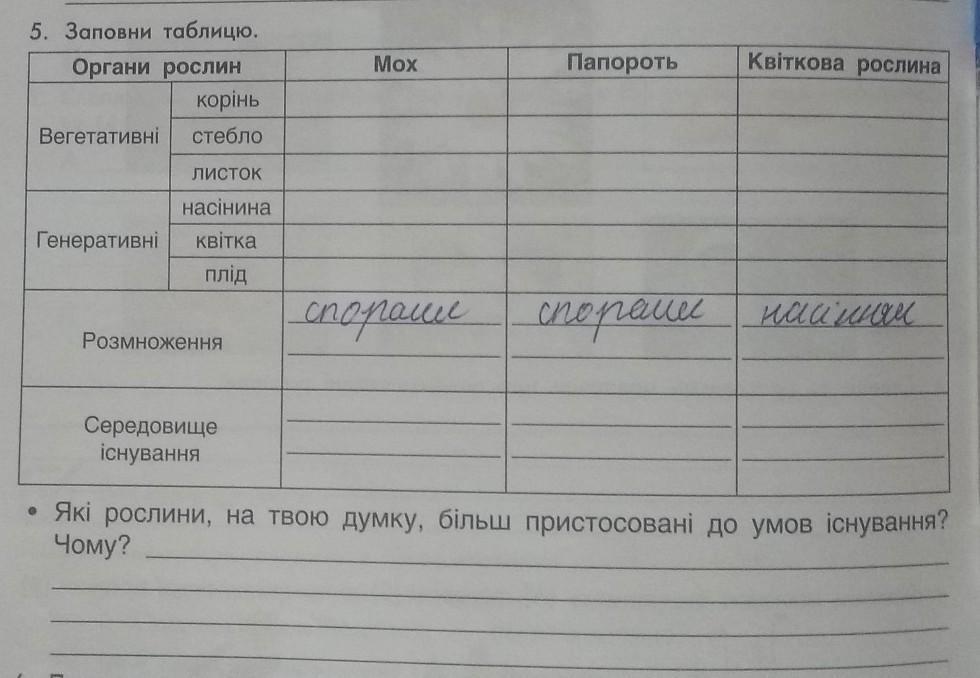 5. Заповни таблицю.
Органи рослин Мох Папороть Квіткова рослина
Вегетативні
корінь
стебло
листок
Генеративні
насінина
квітка
плід
Розмноження спорами спорами насінням
Середовище
існування
• Які рослини, на твою думку, більш пристосовані до умов існування?
Чому?